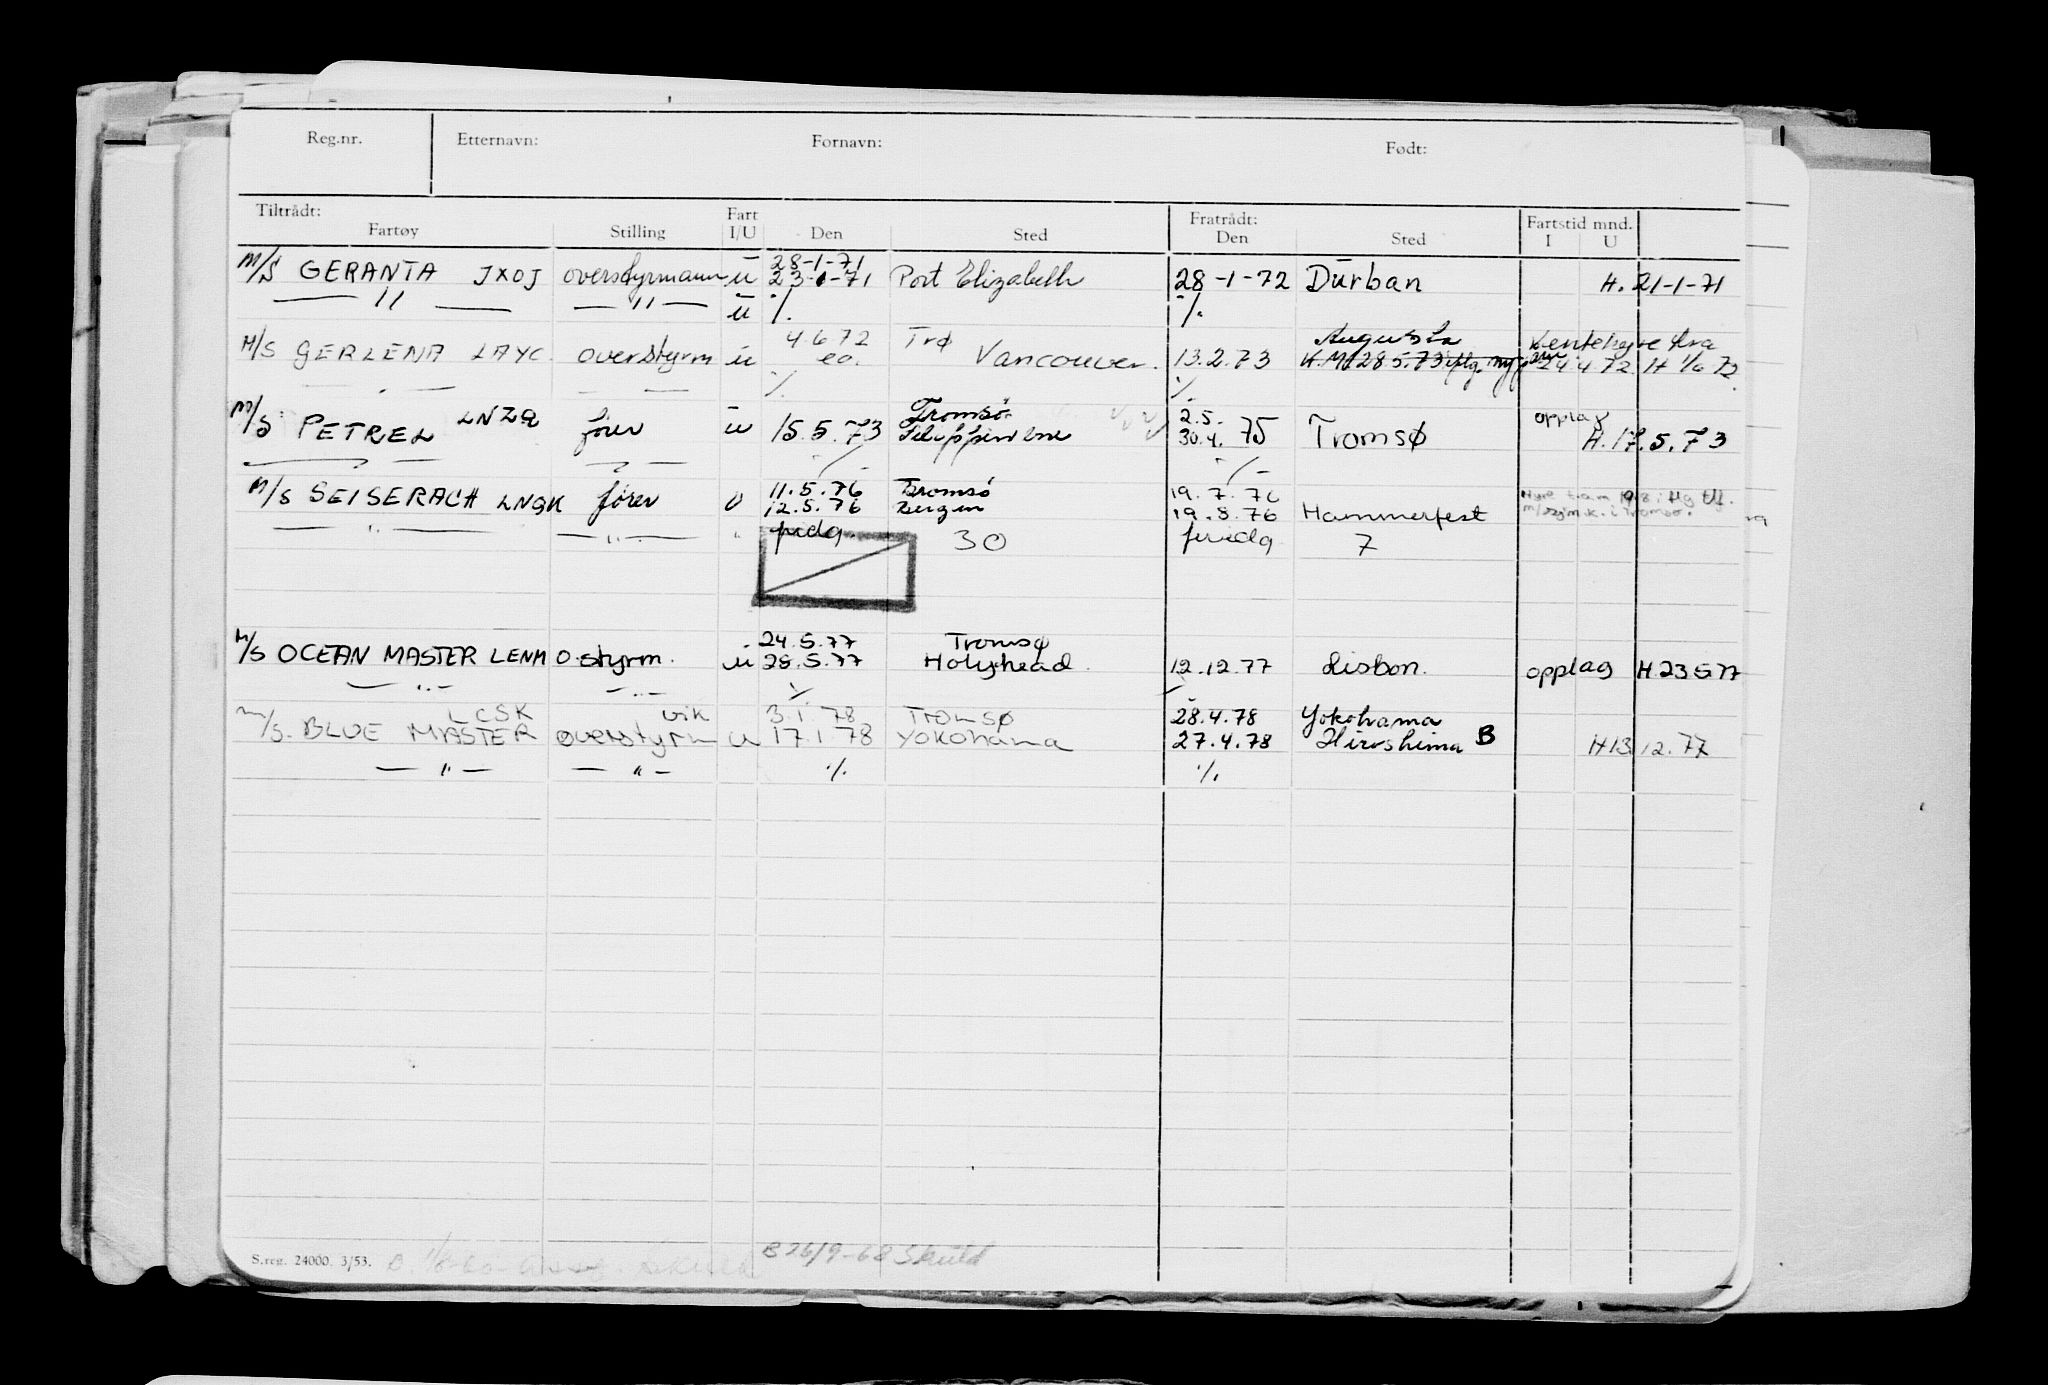 Reg.nr. Etternavn: Fornavn: Født:
Tiltrådt: Fart Fratrådt: Fartstid mnd.
Fartøy Stilling I/U Den Sted Den Sted I U
28-1-71
M/S GERANTA JXOJ overstyrmann u 23-1-71 Port Elizabeth 28-1-72 Durban H. 21-1-71
— " — — " — u ·/. ·/.
4.6.72 Trø Augusta
M/S GERLENA LAYC. overstyrm u eo. Vancouver. 13.2.73 24.4.72. H 1/6 72.
— " — — — ·/. ·/.
Tromsø 2.5. opplag
M/S PETREL LNZQ fører u 15.5.73 30.4. 75 Tromsø H. 17.5.73
11.5.76 Tromsø 19.7.76
M/S SEISERACH LNQK fører u 12.5.76 Bergen 19.8.76 Hammerfest m/sjm.k. i Tromsø.
— " — — " — " 30 7
24.5.77 Tromsø
M/S OCEAN MASTER LENM O.styrm. u 28.5.77 Holyhead 12.12.77 Lisbon. opplag H.23577
— " — — " — ·/. ·/.
LCSK vik 3.1.78 Tromsø 28.4.78 Yokohama
m/s. BLUE MASTER overstyrm u 17.1.78 Yokohama 27.4.78 Hiroshima B H13.12.77
— " — — " — ·/. ·/.
S.reg. 24000. 3/53. B 26/9-68 Skuld